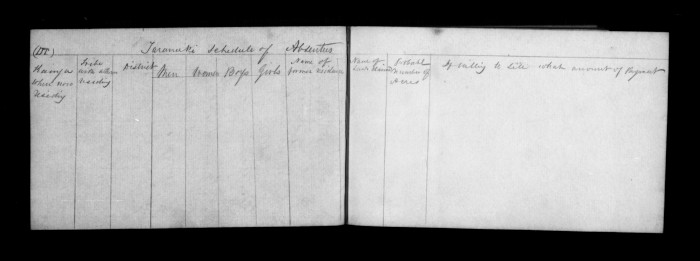 (III) Taranaki Schedule of Absentees
Hamga when now residing
Tribe with whom residing
District
Men
Women
Boys
Girls
Name of former residence
Name of Land claimed
Probable number of Acres
If willing to sell what amount of Payment